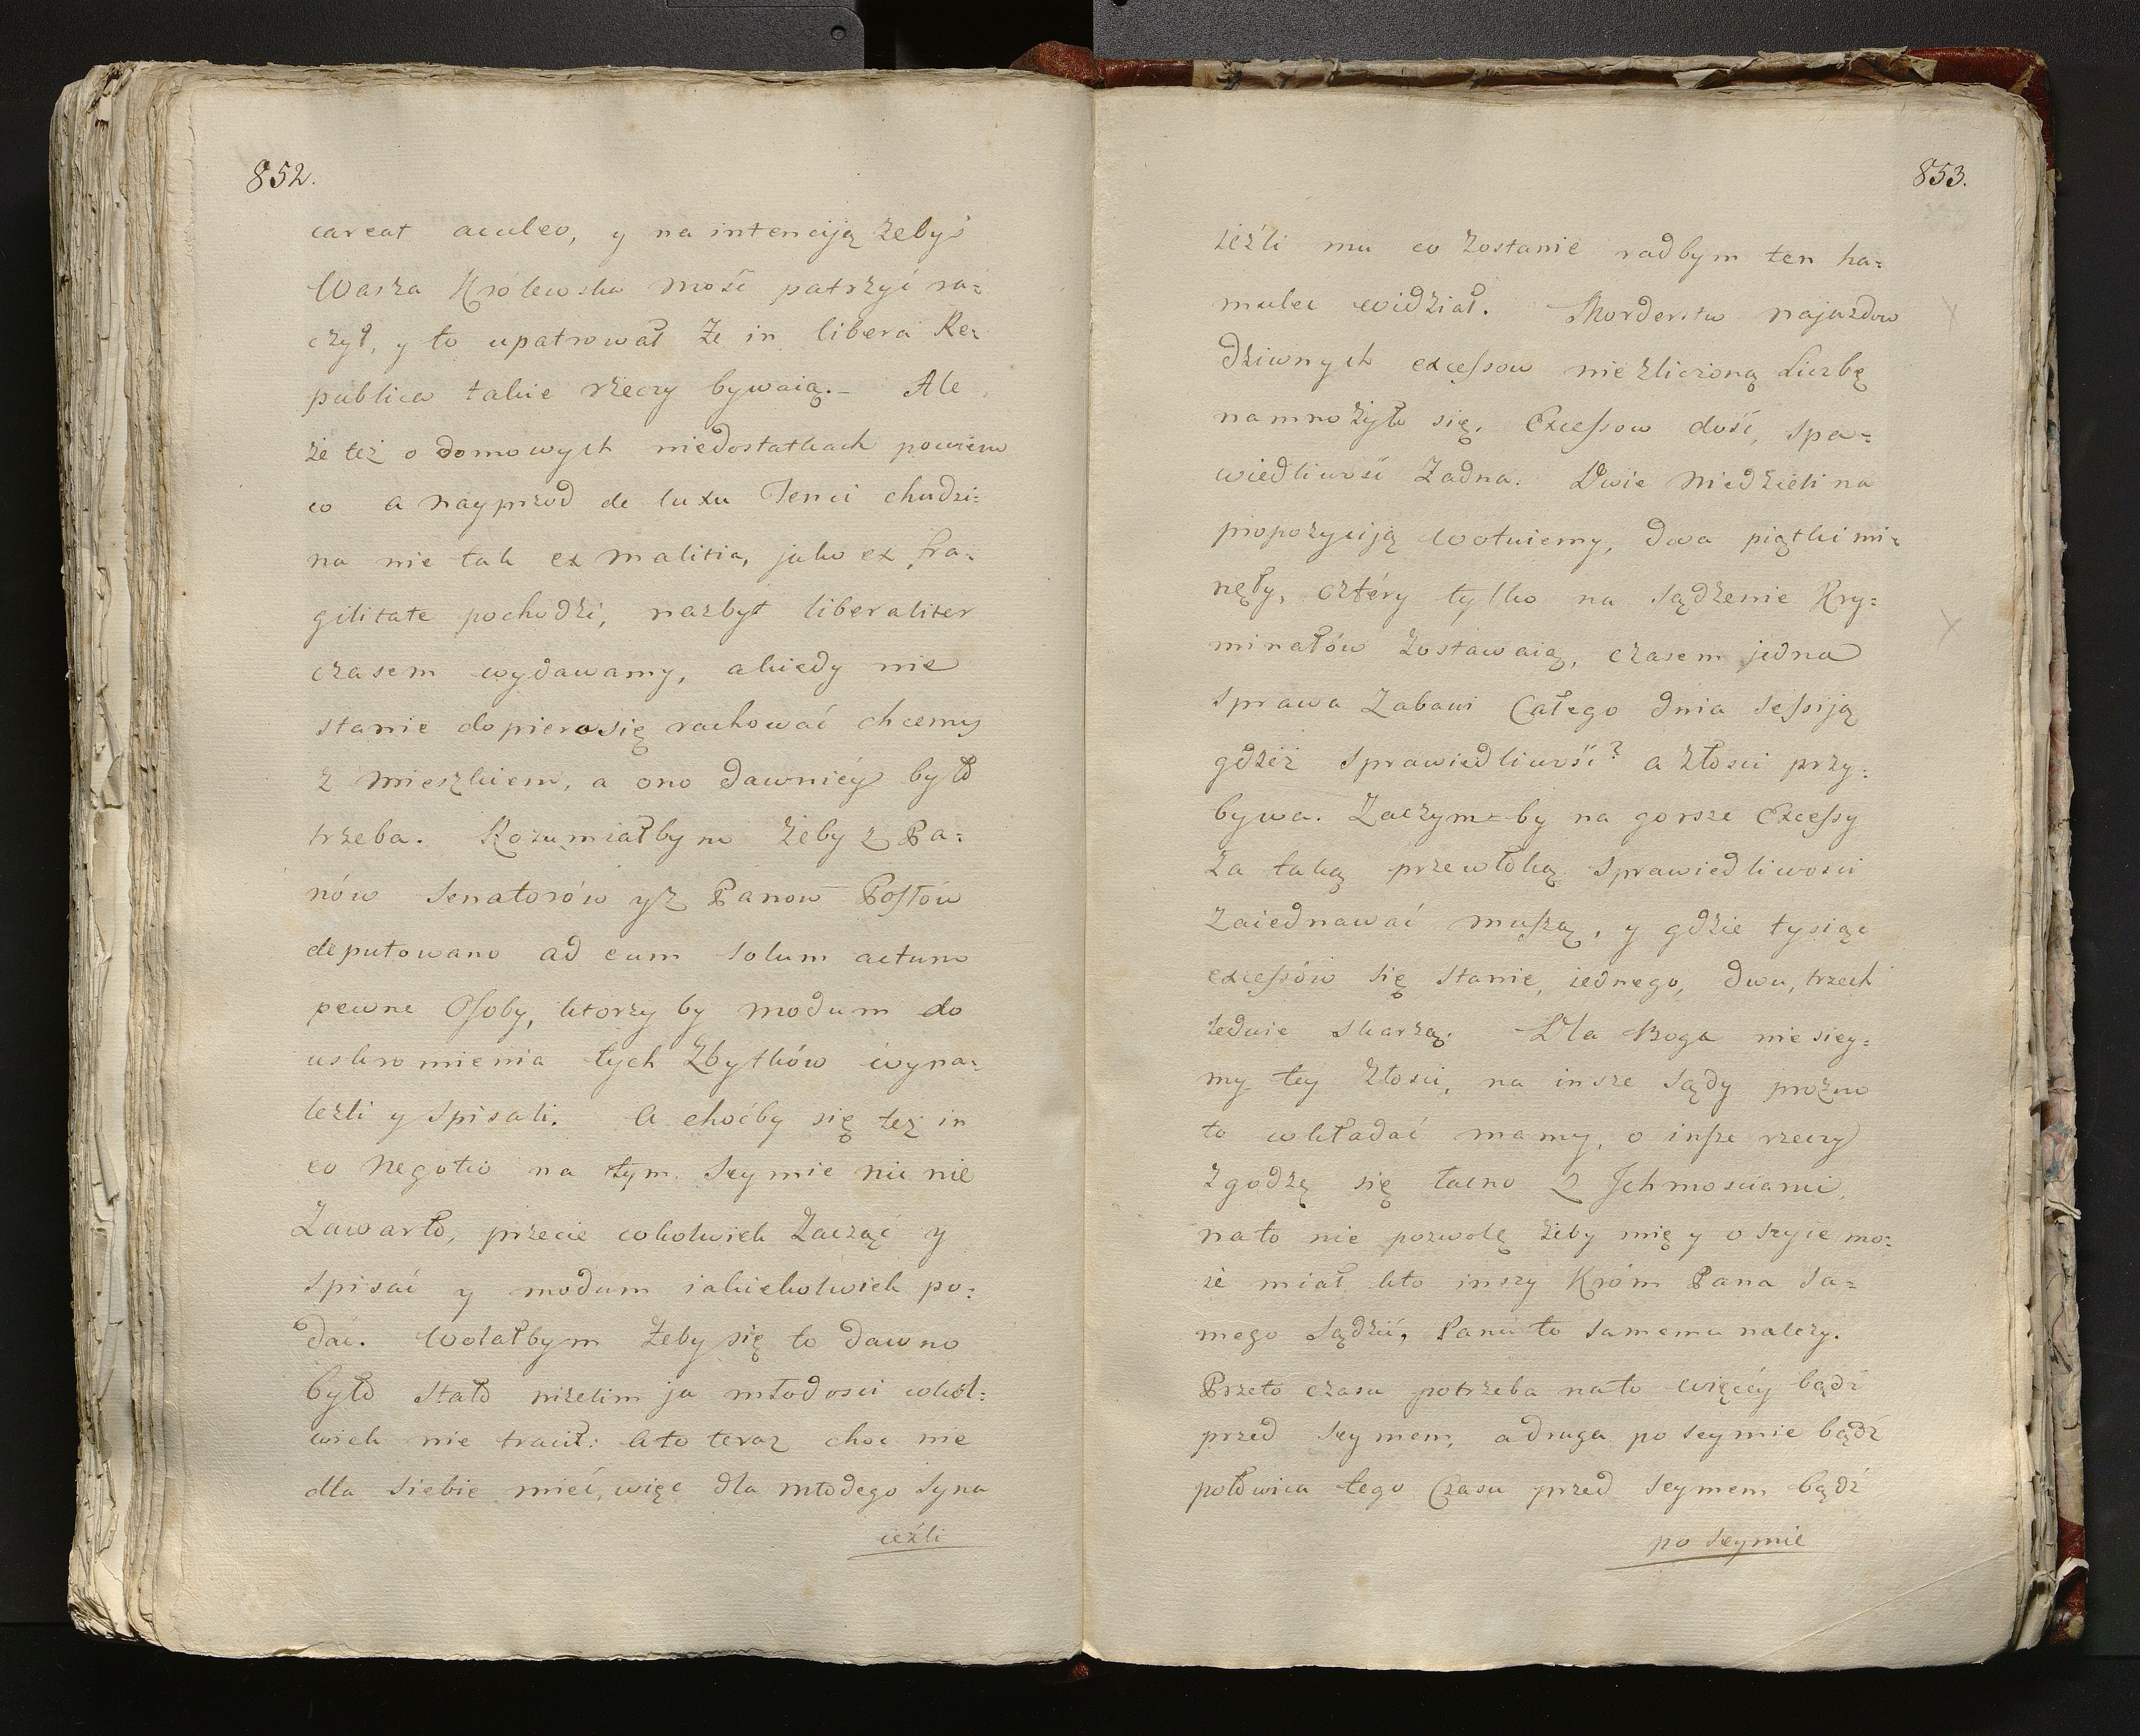 852.
careat aculeo, y na intenciją żebyś
Wasza Królewska mość patrzyć ra=
czył, y to upatrował że in libera Re=
publica takie rzeczy bywaią.– Ale
że też o domowych niedostatkach powiem
co a nayprzod de luxu Ten ci chudzi=
na nie tak ex malitia, jako ex fra=
gilitate pochodzi, nazbyt liberaliter
czasem wydawamy, a kiedy nie
stanie dopiero się rachować chcemy
z mieszkiem, a ono dawniéy było
trzeba. Rozumiałbym żeby z Pa=
nów Senatorów y z Panow Posłów
deputowano ad eum solum actum
pewne Osoby, ktorzy by modum do
uskromienia tych Zbytków wyna=
lezli y spisali. A choćby się też in
eo negotio na tym Seymie nic nie
Zawarło, przecie cokolwiek Zacząć y
Spisać y modum iakiekolwiek po=
dać. Wolałbym żeby się to dawno
było stało niżelim ja młodosci cokol=
wiek nie tracił: A to teraz choc nie
dla siebie mieć, więc dla młodego Syna
ieźli
853.
ieźli mu co zostanie radbym ten ha=
mulec widział. Morderstw najazdow
dziwnych excessow nie zliczoną Liczbę
namnożyło się, Excessow dość, Spa=
wiedliwość Zadna. Dwie Niedzieli na
propozyciją wotuiemy, dwa piątki mi=
nęły, cztéry tylko na sądzenie Kry=
minałów zostawaią, czasem jedna
Sprawa Zabawi Całego dnia Sessiją
gdzież Sprawiedliwość? a złosci przy=
bywa. Zaczym=by na gorsze Excessy
za taką przewłoką Sprawiedliwosci
zaiednawać muszą, y gdzie tysiąc
excessów się stanie, iednego, dwu, trzech
ledwie skarzą. Dla Boga nie siey=
my tey złosci, na insze Sądy prozno
to wkładać mamy, o insze rzeczy
Zgodzę się łacno z Jchmosciami,
na to nie pozwolę żeby mię y o szyie mo=
ie miał kto inszy Króm Pana Sa=
mego Sądzić, Panu to samemu należy.
Przeto czasu potrzeba na to więcéy bądź
przed Seymem, a druga po seymie bądź
połowica tego Czasu przed Seymem bądź
po Seymie